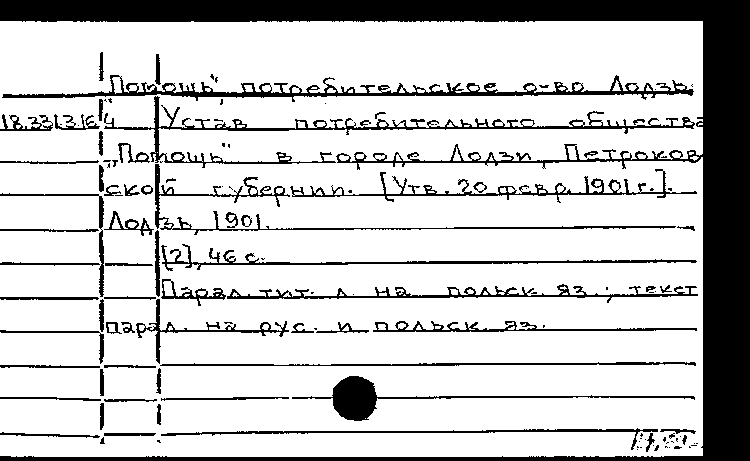 „Помощь", потребительское о-во Лодзь.
18.331.3.16.4 Устав потребительного общества
„Помощь" в городе Лодзи, Петроков-
ской губернии. [Утв. 20 февр. 1901 г.].
Лодзь, 1901.
[2], 46 с.
Парал. тит. л. на польск. яз.; текст
парал. на рус. и польск. яз.